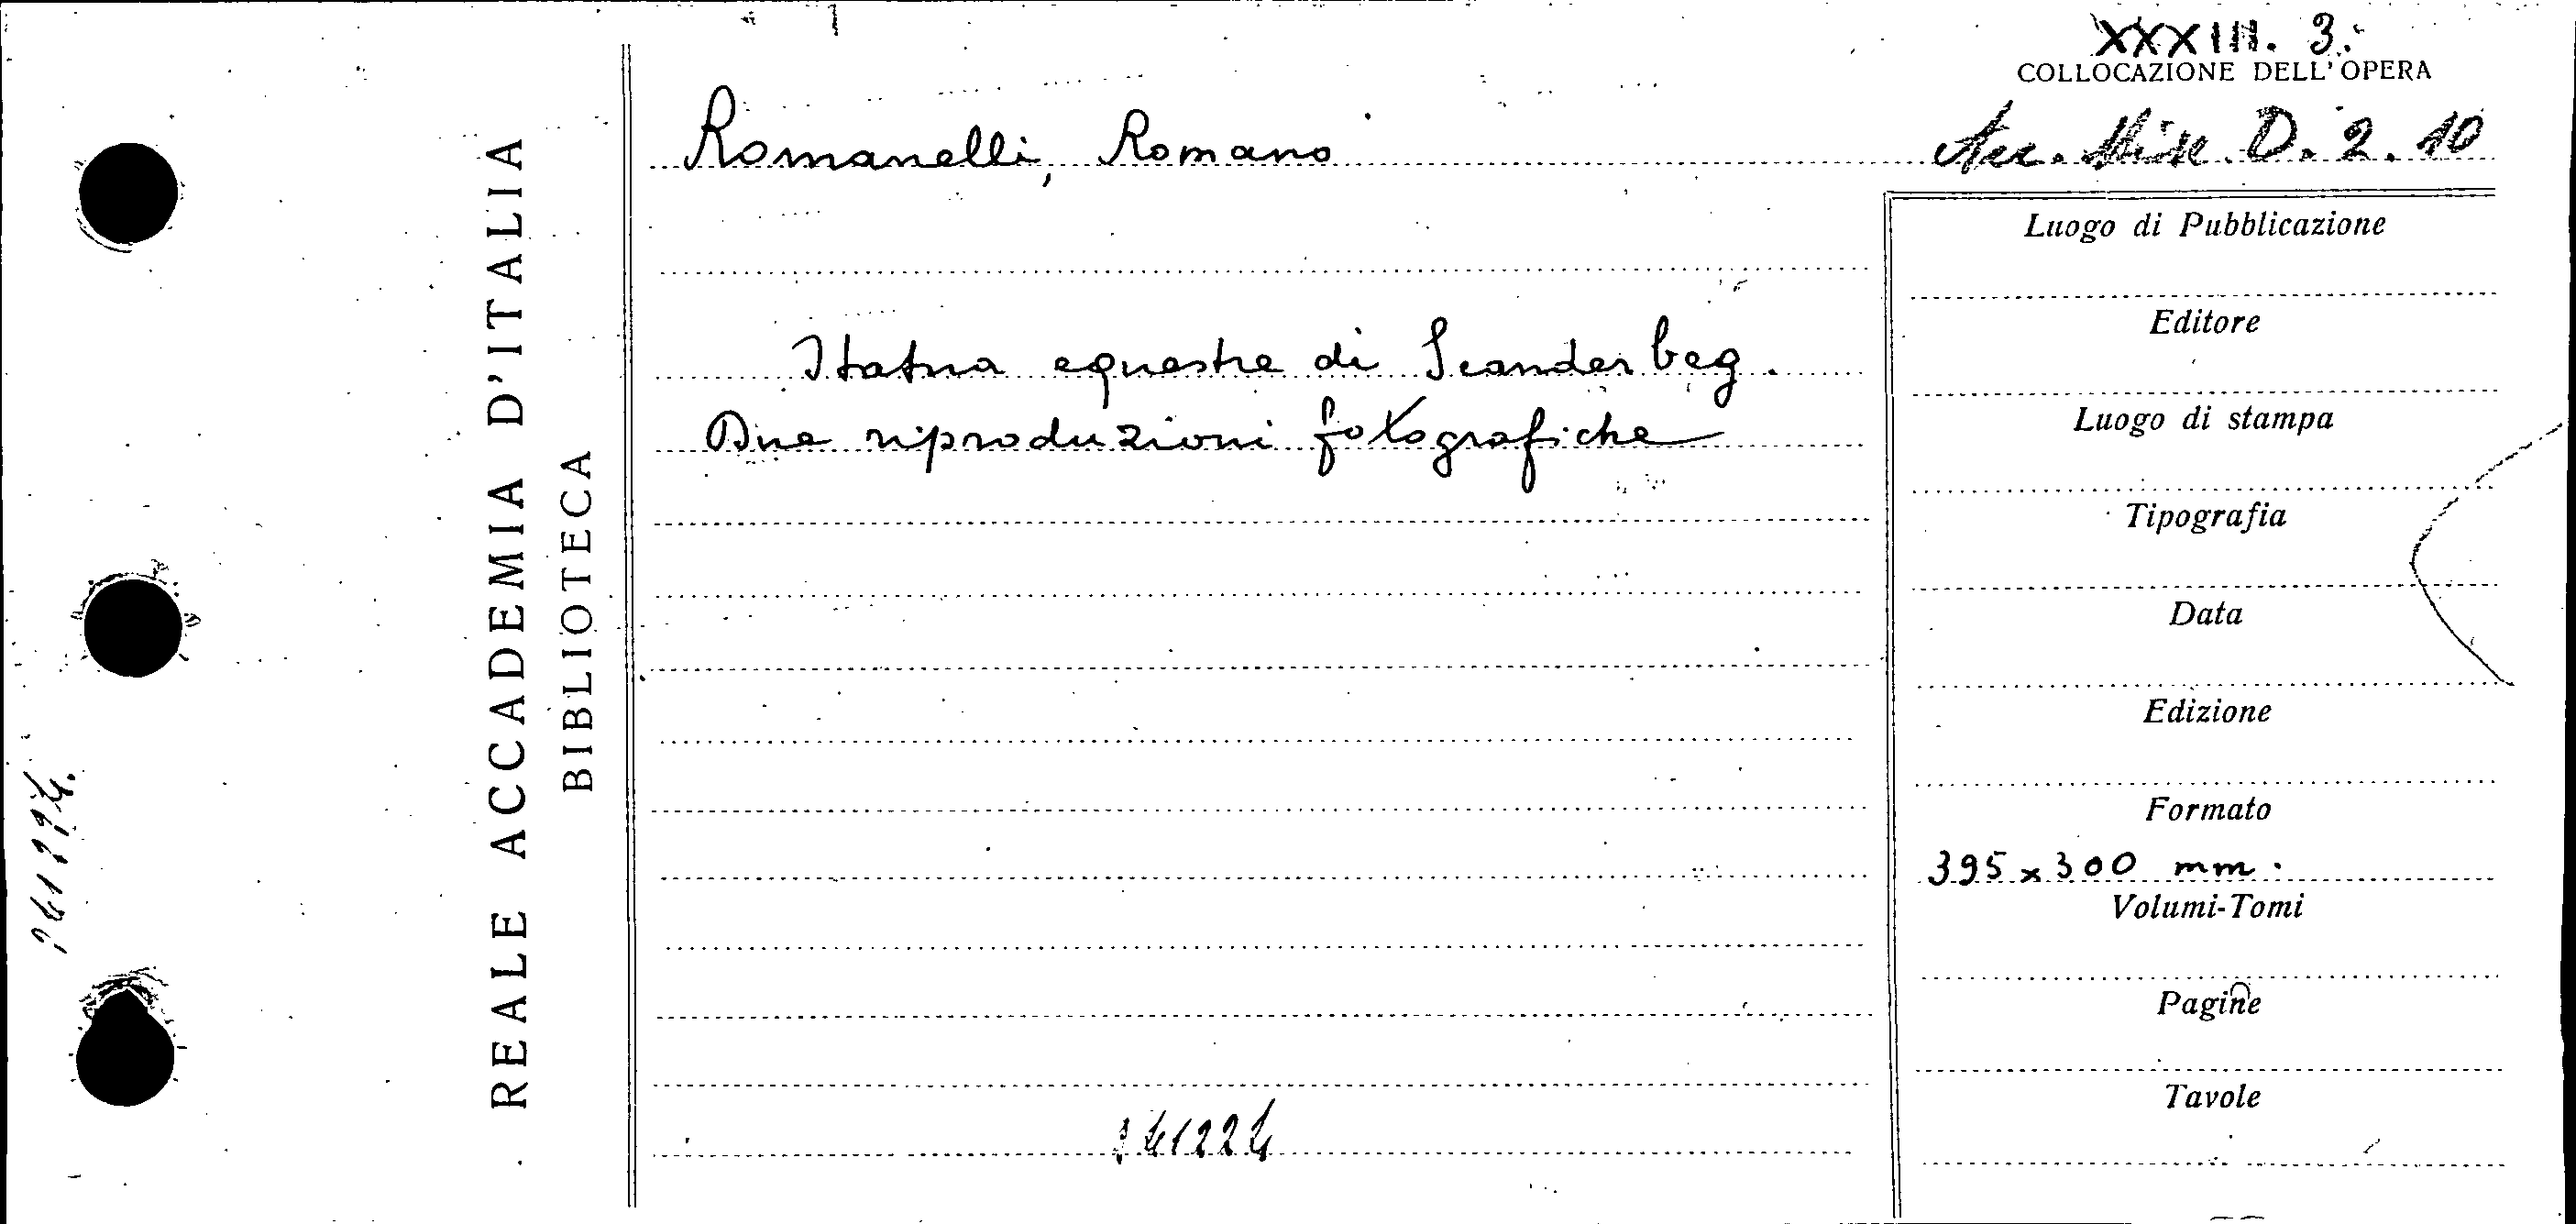 XXXIII. 3.
COLLOCAZIONE DELL'OPERA
Romanelli, Romano
Acc. Misc. D. 2. 10
REALE ACCADEMIA D'ITALIA
BIBLIOTECA
Statua equestre di Scanderbeg.
Due riproduzioni fotografiche
Luogo di Pubblicazione
Editore
Luogo di stampa
Tipografia
Data
Edizione
Formato
395 x 300 mm.
Volumi-Tomi
Pagine
Tavole